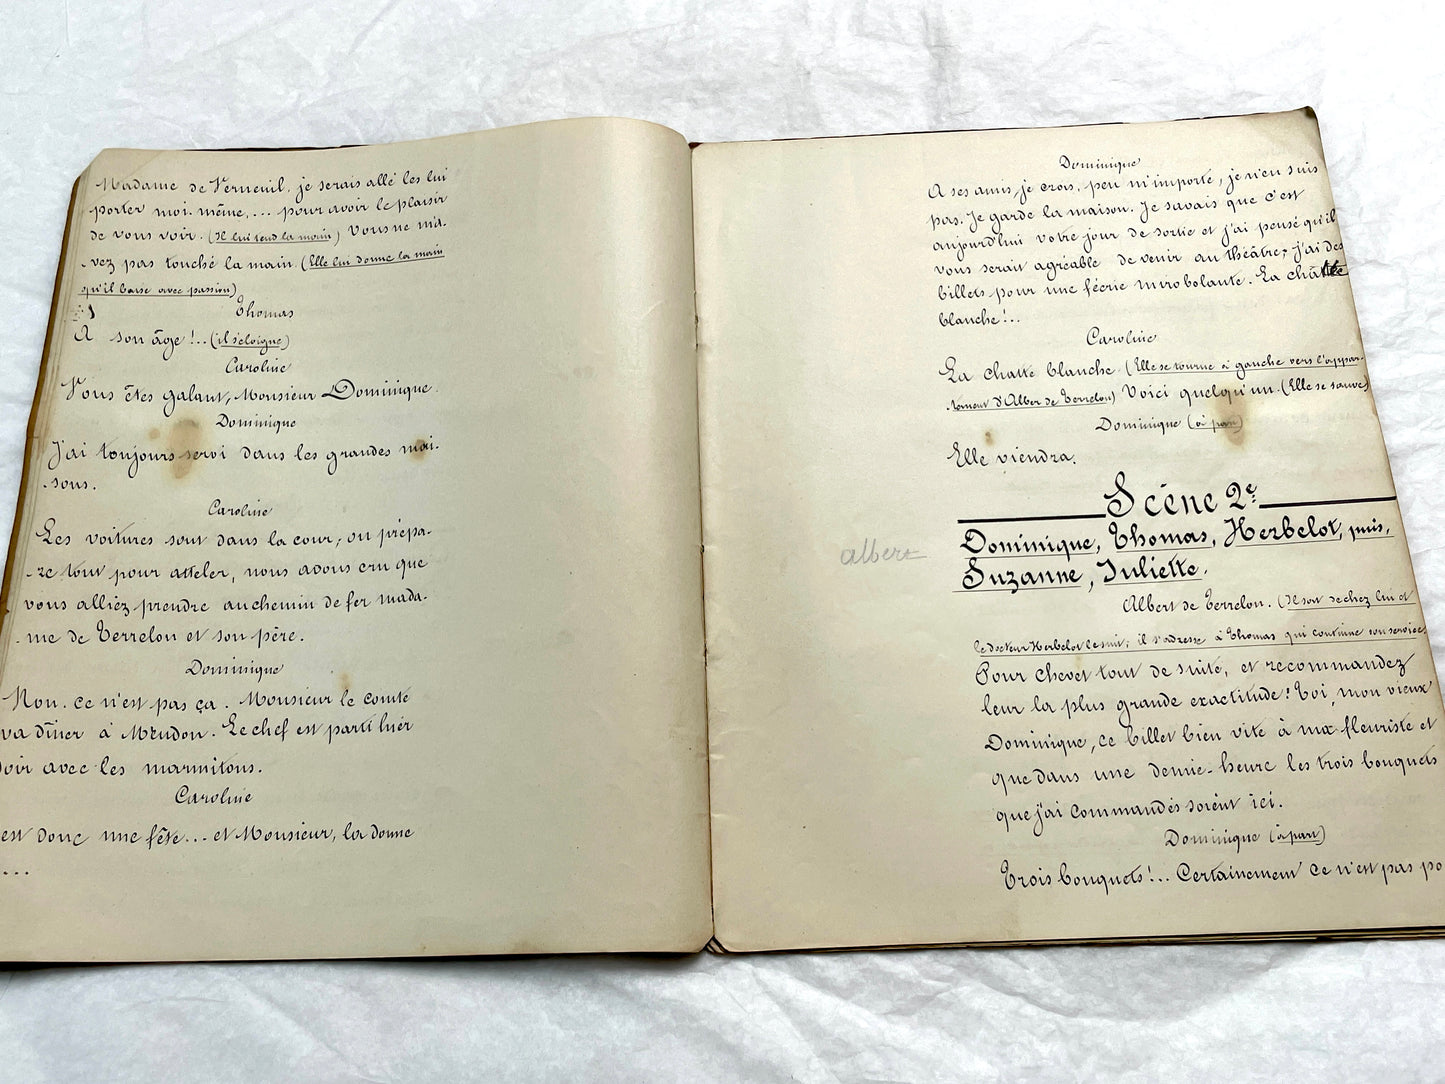 Madame de Verneuil, je serais allé les lui
porter moi-même, ... pour avoir le plaisir
de vous voir. (Il lui tend la main) Vous ne m'a-
-vez pas touché la main. (Elle lui donne la main
qu'il baise avec passion)
Thomas
A son âge !.. (il s'éloigne)
Caroline
Vous êtes galant, Monsieur Dominique.
Dominique
J'ai toujours servi dans les grandes mai-
-sons.
Caroline
Les voitures sont dans la cour, on prépa-
-re tout pour atteler, nous avons cru que
vous alliez prendre au chemin de fer mada-
-me de Terrelon et son père.
Dominique
Non. ce n'est pas ça. Monsieur le comte
va dîner à Meudon. Le chef est parti hier
soir avec les marmitons.
Caroline
est donc une fête... et Monsieur, la donne
...
Dominique
A ses amis, je crois, peu m'importe, je n'en suis
pas. Je garde la maison. Je savais que c'est
aujourd'hui votre jour de sortie et j'ai pensé qu'il
vous serait agréable de venir au théâtre; j'ai des
billets pour une féerie mirobolante. La chatte
blanche !..
Caroline
La chatte blanche. (Elle se tourne à gauche vers l'appar-
-tement d'Alber de Terrelon) Voici quelqu'un. (Elle se sauve)
Dominique (à part)
Elle viendra.
Scène 2e
Dominique, Thomas, Herbelot, puis,
Suzanne, Juliette.
albert
Albert de Terrelon. (Il sort de chez lui et
le docteur Herbelot le suit; il s'adresse à Thomas qui continue son service)
Pour chevet tout de suite, et recommandez
leur la plus grande exactitude ! Toi, mon vieux
Dominique, ce billet bien vite à ma fleuriste et
que dans une demie-heure les trois bouquets
que j'ai commandés soient ici.
Dominique (à part)
Trois bouquets !... Certainement ce n'est pas po